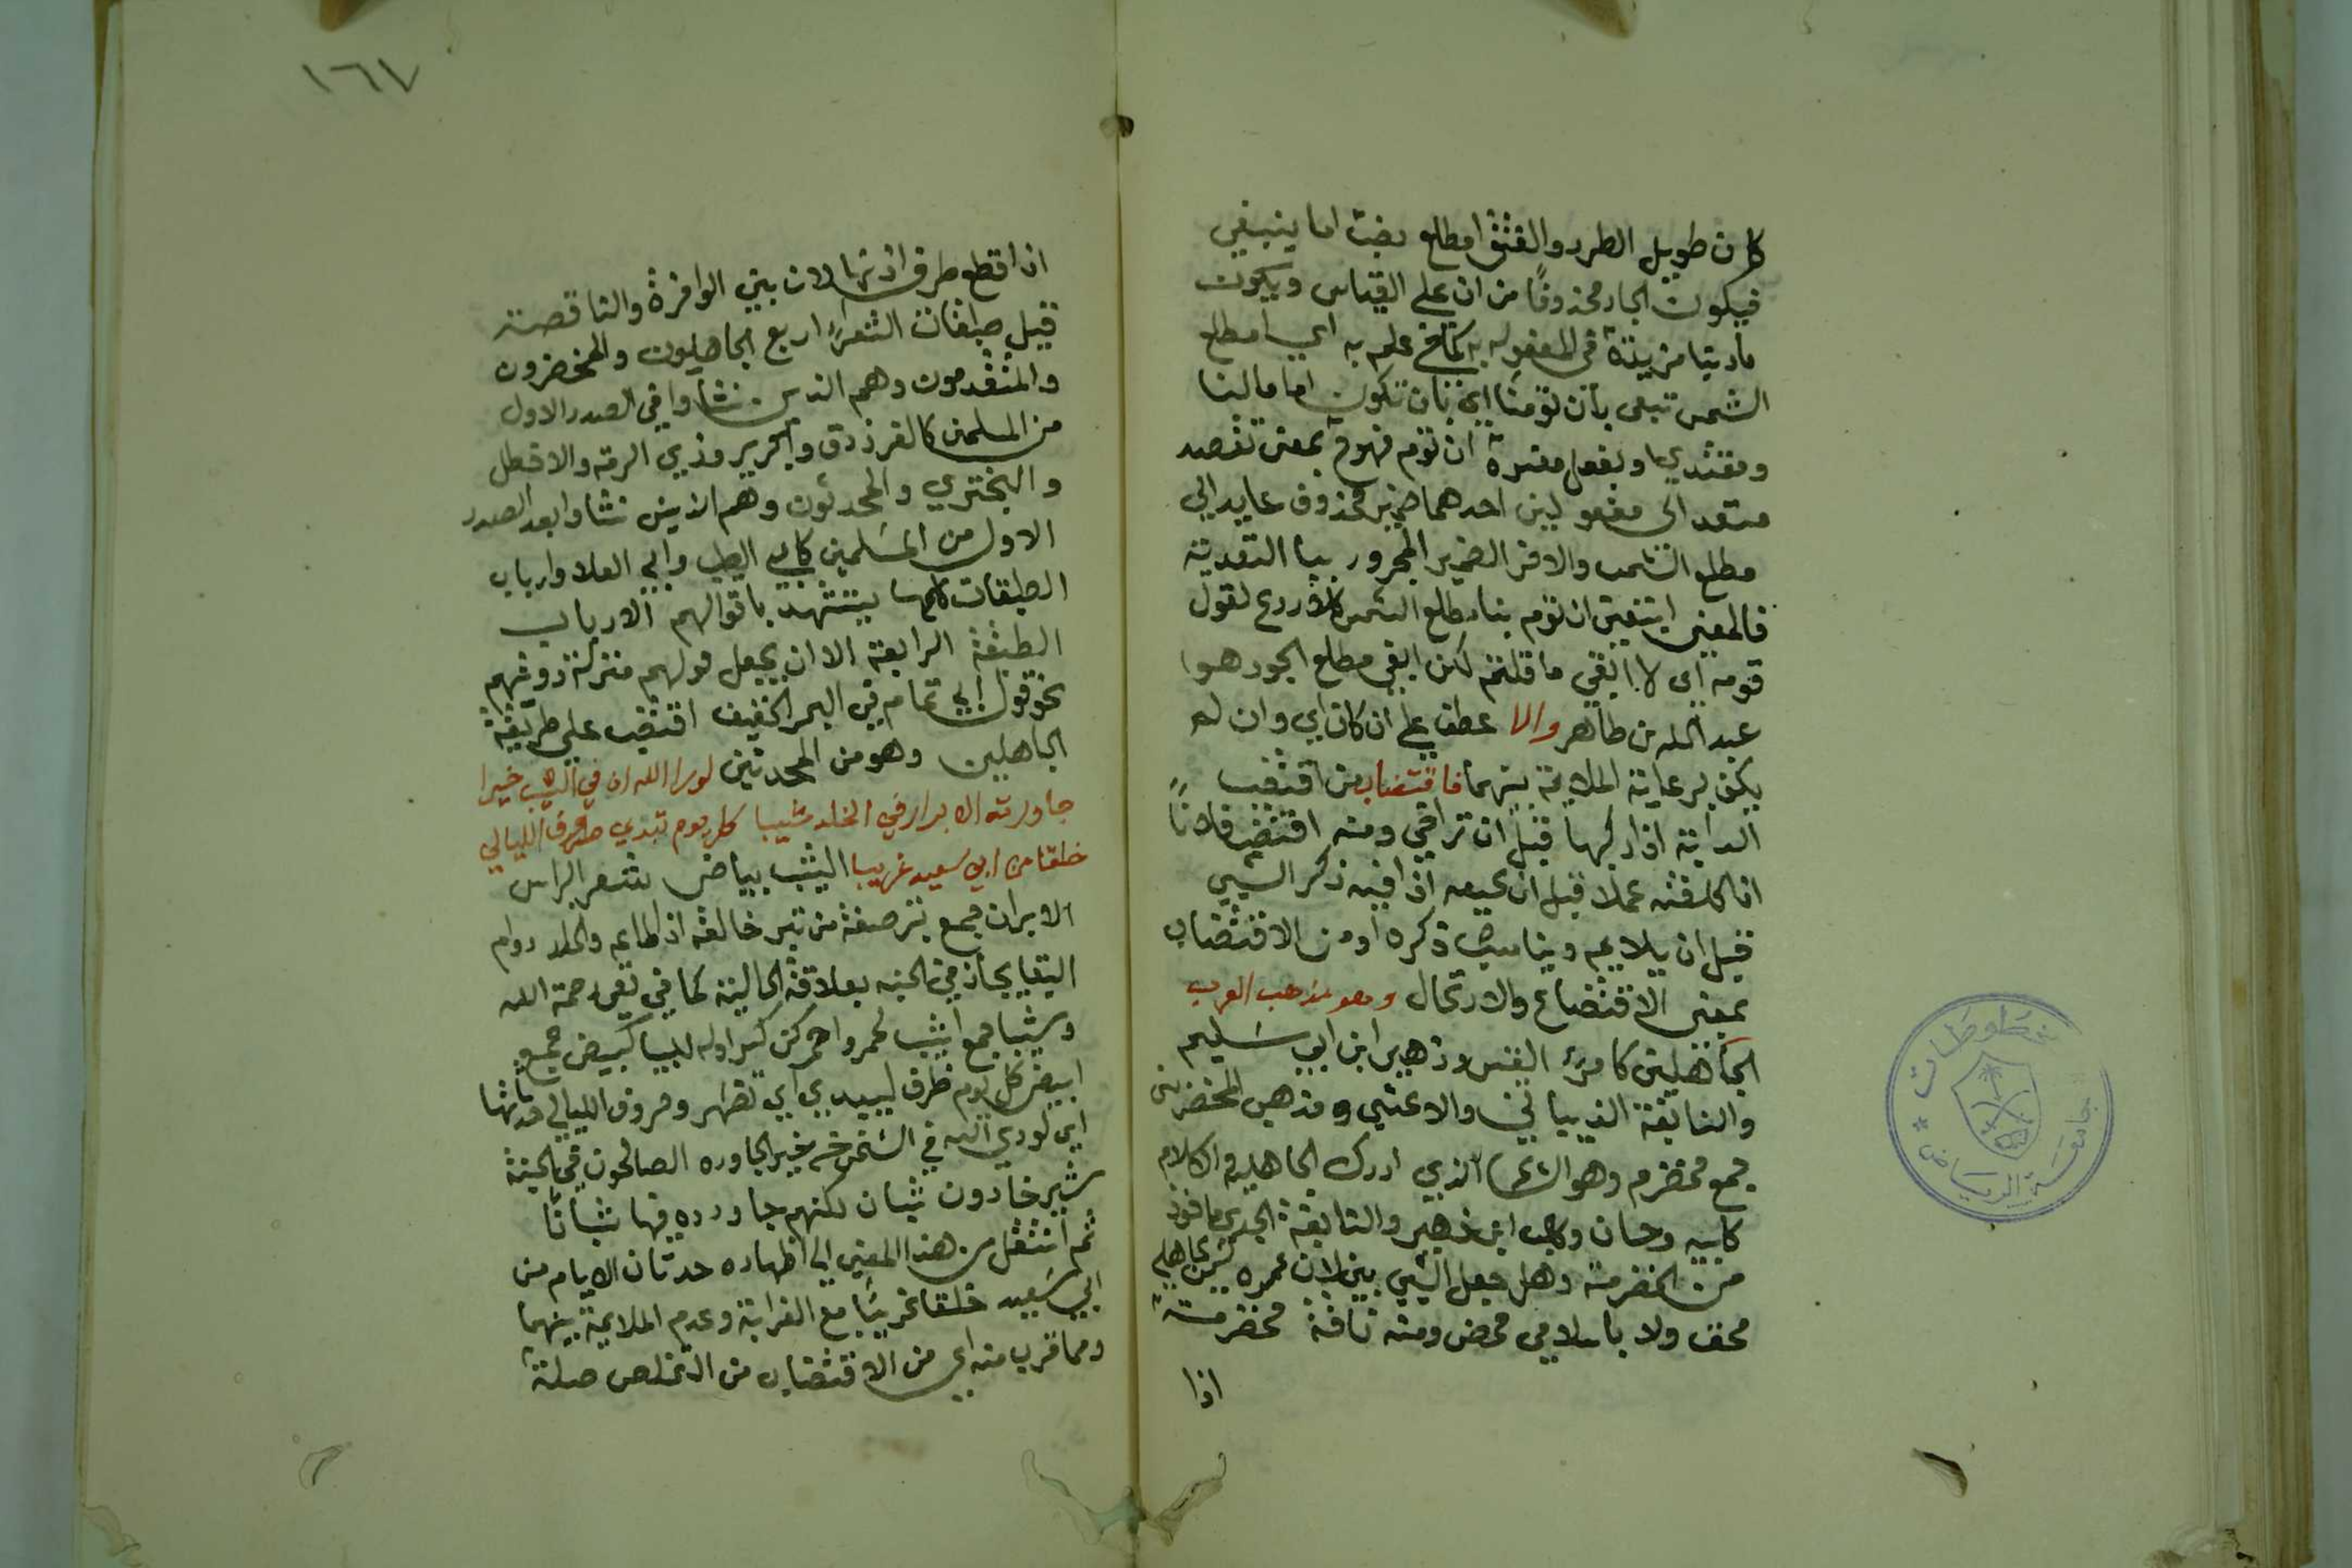 كان طويل الطرد والقثق امطلع بضبت اما ينبغي
فيكون الجار محذوفا من ان على القياس ويكون
مادتبا مزيدة في المفعول به كما في علم به اي امطلع
الشمس تبغى بان تؤمنا اي بان تكون اماما لنا
ومقتدي وبفعل مقدرة ان توم فهو بمعنى تقصد
متعد الى مفعولين احدهما ضمير محذوف عايد الى
مطلع الشمس والاخر الضمير المجرور ببا التعدية
فالمعنى ابتغي ان توم بنا مطلع الشمس كلا ردع لقول
قومه اي لا ابغي ما قلتم لكن ابغي مطلع الجود هو
عبد الله بن طاهر والا عطف على ان كان اي وان لم
يكن برعاية الملايمة بينهما فاقتضاب من اقتضب
الدابة اذا ركبها قبل ان تراض ومنه اقتضب فلانا
اذا كلفته عملا قبل ان اذا فيه ذكر الشي
قبل ان يلايم ويناسب ذكره او من الاقتضاب
بمعنى الاقتضاع والارتحال وهو مذهب العرب
الجاهلين كامرئ القيس وزهير ابن ابي سليم
والنابغة الذبياني والاعشي ومذهب المخضرمين
جمع مخضرم وهو الشاعر الذي ادرك الجاهلية والاسلام
كلبيد وحسان وكعب ابن زهير والنابغة الجعدي ماخوذ
من الخضرمة وهل جعل الشي بين لان عمره ليس بجاهلي
محض ولا باسلامي محض ومنه ناقة مخضرمة
اذا
١٦٧
اذا قطع طرف اذنها لانه بين الوافرة والناقصة
قيل طبقات الشعراء اربع الجاهليون والمخضرمون
والمتقدمون وهم الذين نشاوا في الصدر الاول
من المسلمين كالفرزدق وجرير وذي الرمة والاخطل
والبختري والمحدثون وهم الذين نشاوا بعد الصدر
الاول من المسلمين كابي الطيب وابي العلا وارباب
الطبقات كلهم يستشهد باقوالهم الا ارباب
الطبقة الرابعة الا ان يجعل قولهم منزلة روايتهم
نحو قول ابي تمام من البحر الخفيف اقتضب على طريقة
الجاهلين وهو من المحدثين لو راا الله ان في الشيب خيرا
جاورته الابرار في الخلد شيبا كل يوم تبدي صروف الليالي
خلقا من ابي سعيد غريبا الشيب بياض شعر الراس
الابرار جمع بر صفة من بر خالقه اذا اطاعه والخلد دوام
البقا مجاز في الجنة بعلاقة الحالية كما في ففي رحمة الله
وشيبا جمع اشيب كحمر واحمر لكن كسر اوله لليا كبيض جمع
ابيض كل يوم ظرف ليبدي اي تظهر وصروف الليالي حدثانها
اي لو راي الله في الشيخوخة خيرا لجاوره الصالحون في الجنة
شيبا دون شبان لكنهم جاوروه فيها شبانا
ثم انتقل من هذا المعنى الى اظهاره حدثان الايام من
ابي سعيد خلقا غريبا مع الغرابة وعدم الملايمة بينهما
ومما قرب منه اي من الاقتضاب من التخلص صلة